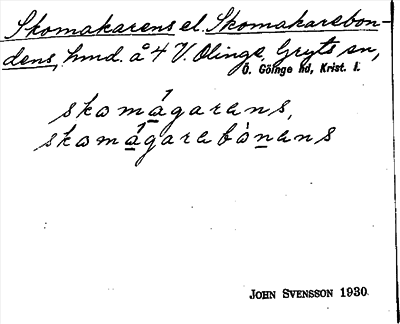 Skomakarens el. Skomakarebon-
dens, hmd. å 4 V. Olinge, Gryts sn,
Ö. Göinge hd, Krist. l.
skomágarens,
skomágarebònens
JOHN SVENSSON 1930